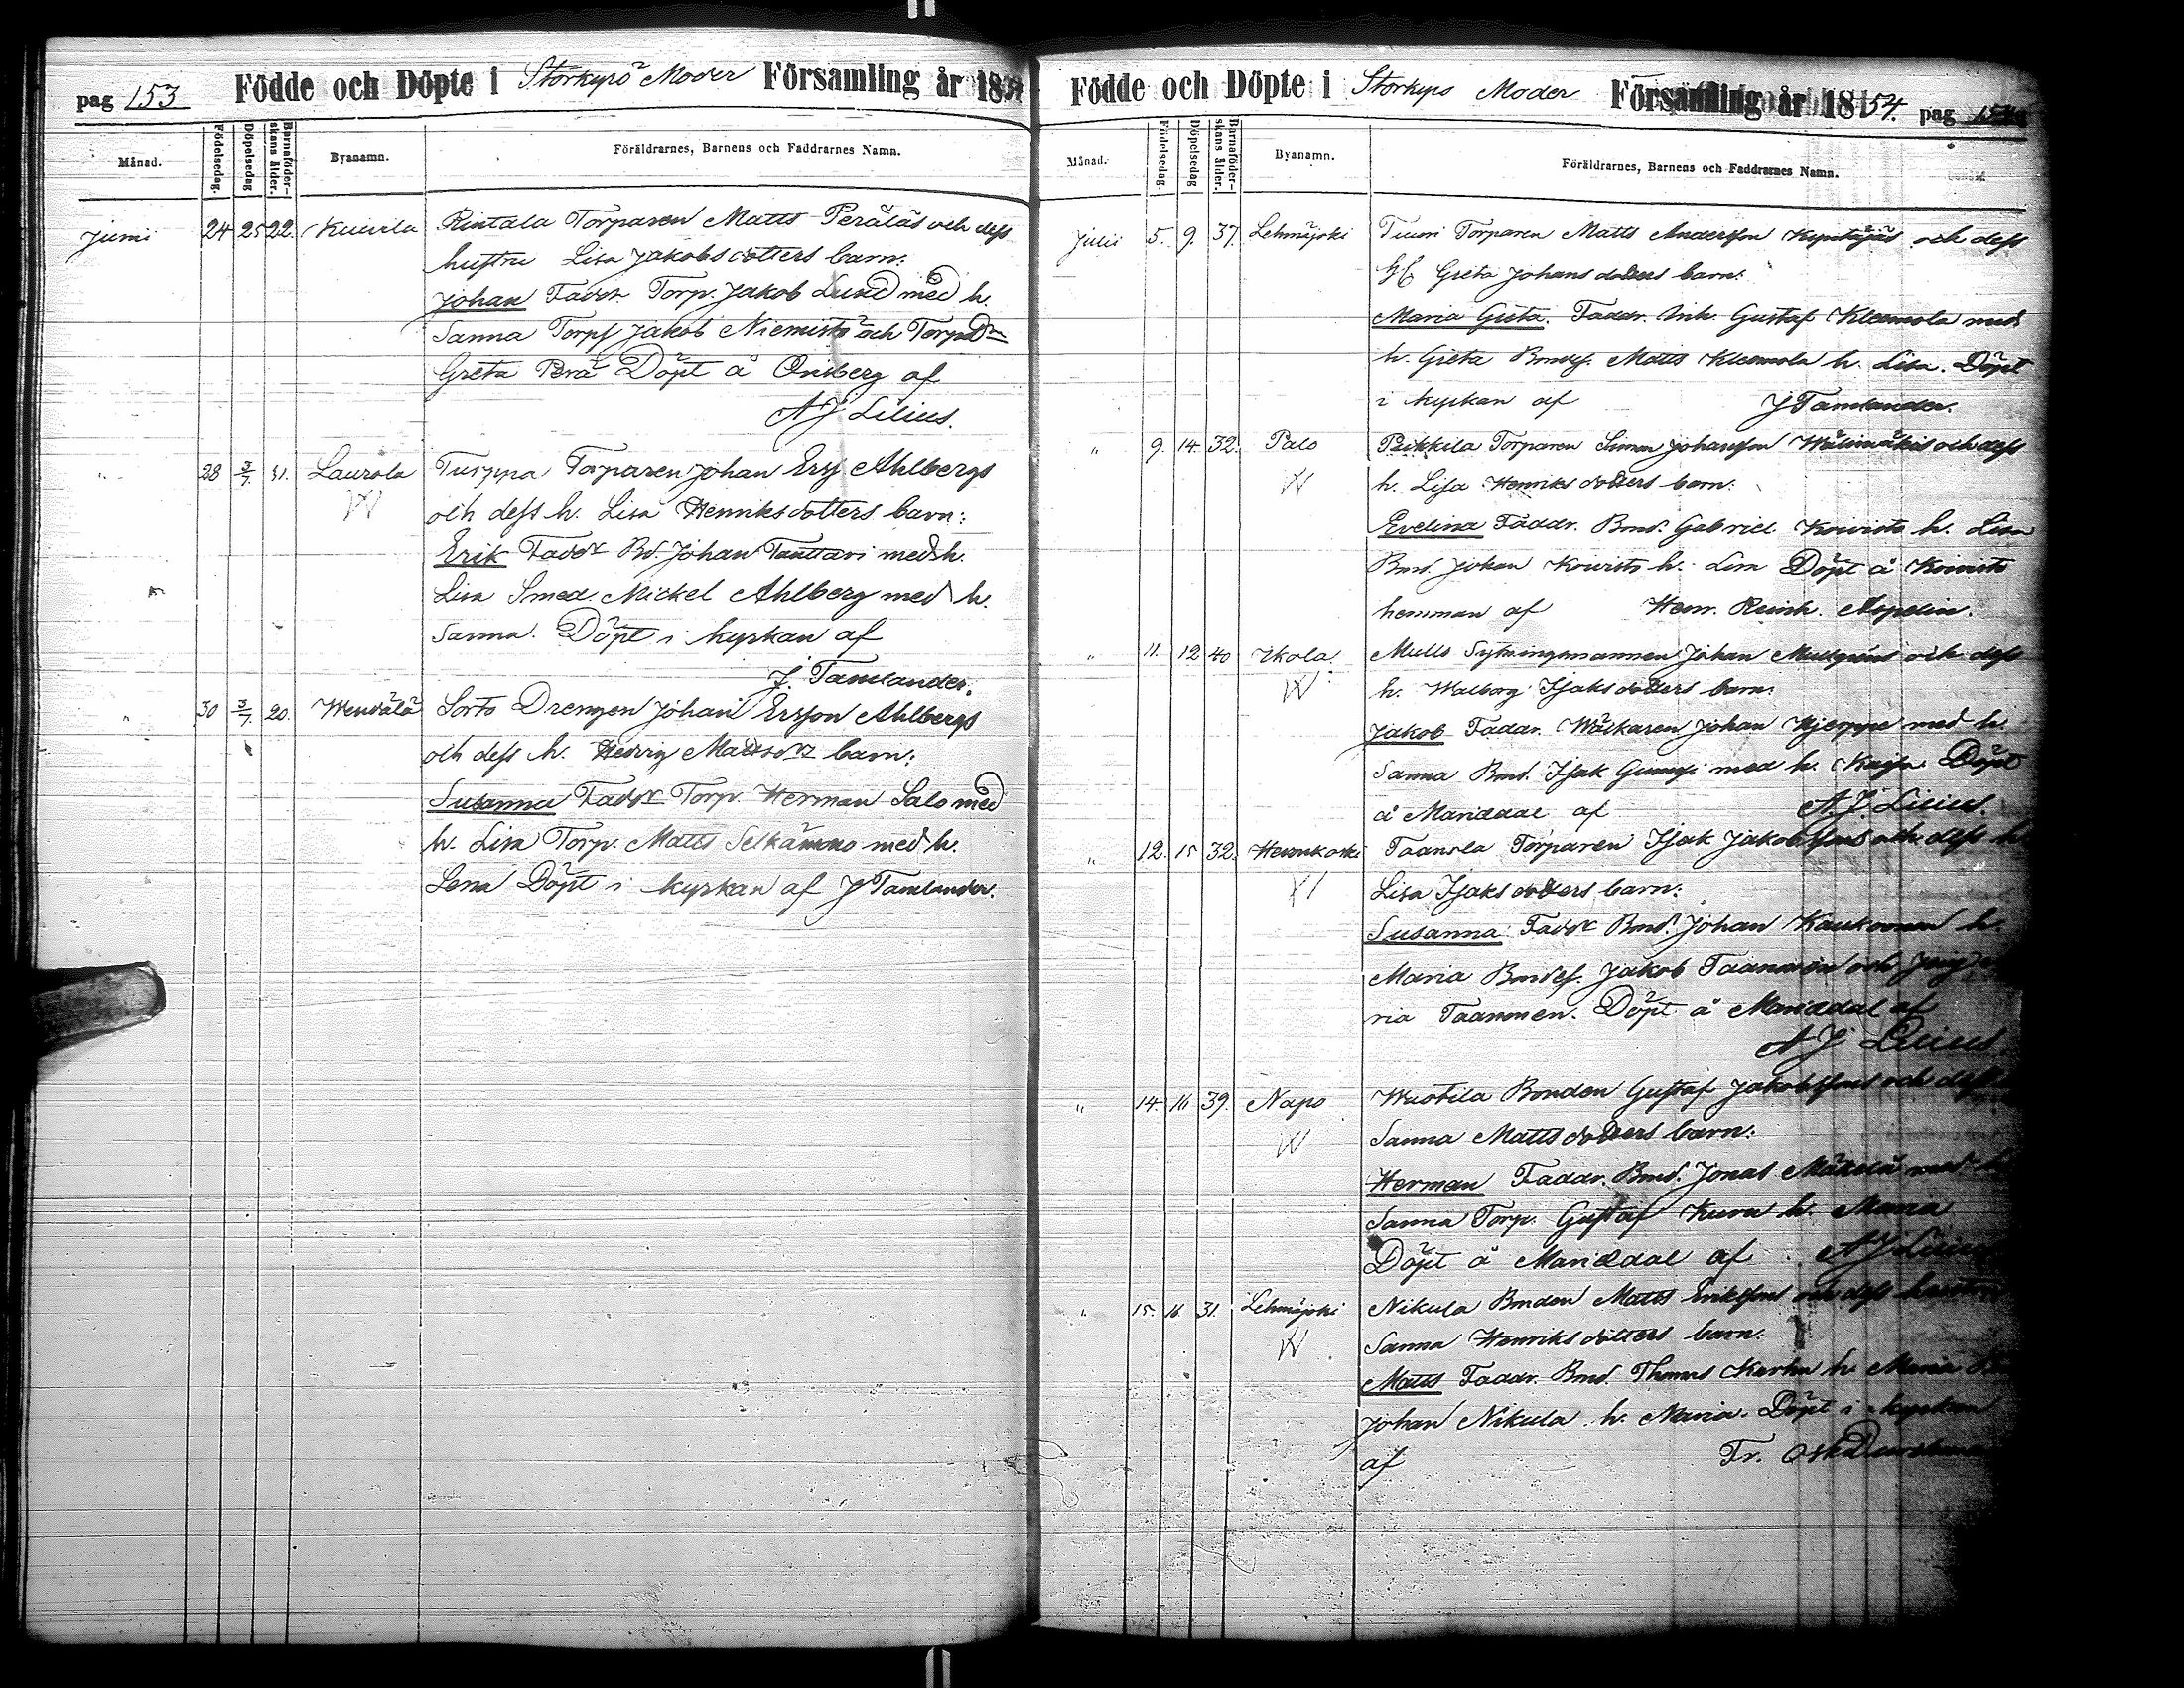 pag 153 Födde och Döpte i Storkyro Moder Församling år 1854
Månad. Födelsedag. Döpelsedag Barnaföderskans ålder. Byanamn. Föräldrarnes, Barnens och Faddrarnes Namn.
Juni 24 25 22. Kuivila Rintala Torparen Matts Peräläs och dess
hustru Lisa Jakobsdotters barn:
Johan Faddr. Torp. Jakob Lund med h.
Sanna Torps Jakob Niemistö och Torpdr
Greta Perä Döpt å Orisberg af
A J Lilius.
" 28 3/7 31. Laurola Tuippa Torparen Johan Ersf Ahlbergs
W och dess h. Lisa Henriksdotters barn:
Erik Faddr Bd. Johan Tanttari med h.
Lisa Smed. Mickel Ahlberg med h.
Sanna. Döpt i kyrkan af
J. Tamlander.
" 30 3/7 20. Wenälä Sorto Drengen Johan Ersson Ahlbergs
och dess h. Hedvig Mattsdr barn:
Susanna Faddr Torp. Herman Salo med
h. Lisa Torp. Matts Selkämo med h.
Lena Döpt i kyrkan af J Tamlander.
Födde och Döpte i Storkyro Moder Församling år 1854. pag 154
Månad. Födelsedag. Döpelsedag Barnaföderskans ålder. Byanamn. Föräldrarnes, Barnens och Faddrarnes Namn.
Julii 5. 9. 37. Lehmäjoki Tuuri Torparen Matts Andersson och dess
H Greta Johansdotters barn:
Maria Greta. Faddr. Inh. Gustaf Kleemola med
h. Greta Bondes. Matts Kleemola h. Lisa. Döpt
i kyrkan af J Tamlander.
" 9. 14. 32. Palo Peikkila Torparen Simon Johansson Wälimäkis och dess
W h. Lisa Henriksdotters barn:
Evelina Faddr. Bond. Gabriel Koivisto h. Lisa
Bond. Johan Koivisto h. Lisa Döpt å Koivisto
hemman af Henr. Reinh. Aspelin.
" 11. 12 40 Ikola Mulls Sytningsmannen Johan och dess
W h. Walborg Isaksdotters barn:
Jakob Faddr. Wäckaren Johan med h.
Sanna Bond. Isak med h. Kaisa. Döpt
å Mariedal af A. J. Lilius.
" 12. 15 32. Hevonkoski Taanola Torparen Isak Jakobssons och dess h
W Lisa Isaksdotters barn:
Susanna Faddr Bond. Johan Kaukonen h.
Maria Bondes. Jakob Taanonen och Jung
ria Taanonen. Döpt å Mariedal af
A J Lilius.
" 14. 16 39. Napo Wuotila Bonden Gustaf Jakobssons och dess
W Sanna Mattsdotters barn:
Herman Faddr. Bond. Jonas Mäkelä med
Sanna Torp. Gustaf Kura h. Maria
Döpt å Mariedal af A J Lilius
" 15. 16 31. Lehmäjoki Nikula Bonden Matts Erikssons och dess hustru
W Sanna Henriksdotters barn:
Matts Faddr. Bond. Thomas Karhu h. Maria
Johan Nikula h. Maria. Döpt i kyrkan
af Fr. Osk